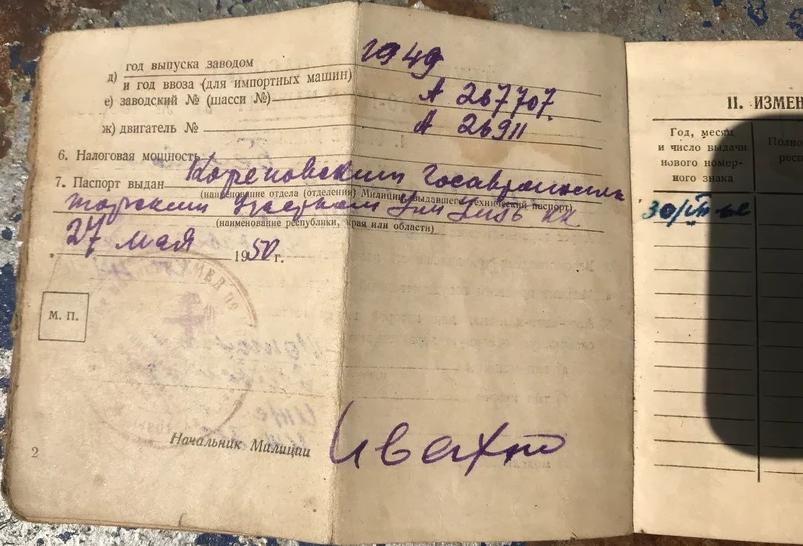 год выпуска заводом 1949
д)
и год ввоза (для импортных машин)
е) заводский № (шасси №) А 267707
ж) двигатель № А 26911
6. Налоговая мощность
7. Паспорт выдан Кореновским Госавтоинспек
(наименование отдела (отделения) Милиции, выдавшего технический паспорт)
торским Участком
(наименование республики, края или области)
27 мая 1950 г.
М. П.
Начальник Милиции
2
II. ИЗМЕН
Год, месяц
и число выдачи
нового номер-
ного знака